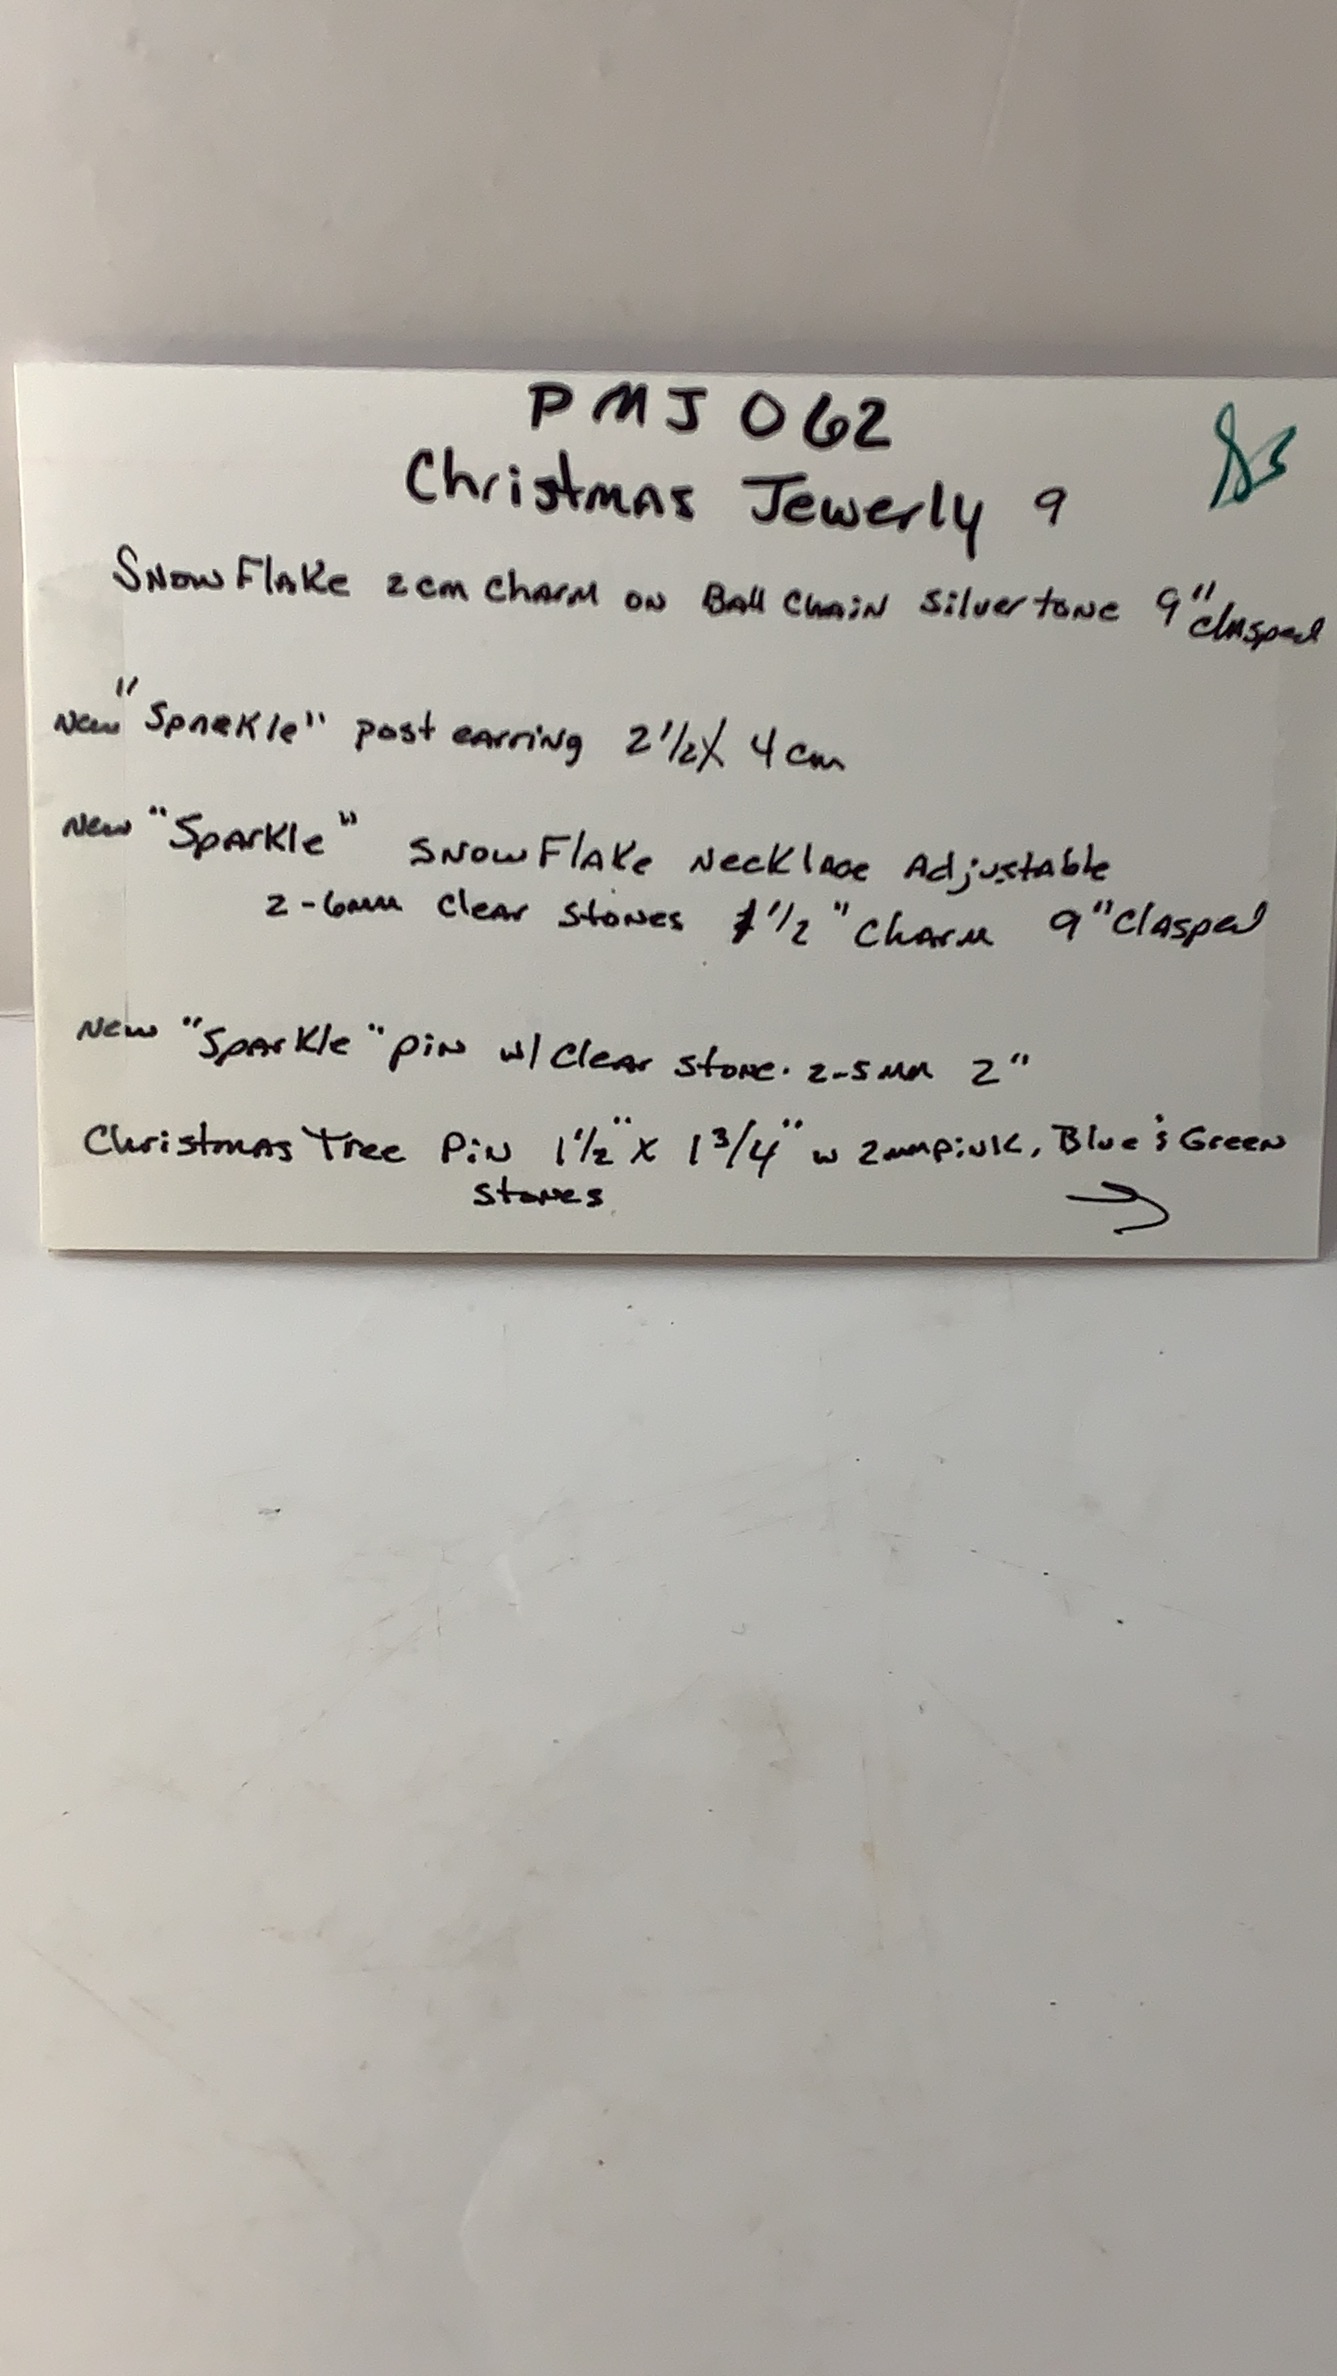 PMJ 062
Christmas Jewerly 9
Snow Flake 2cm Charm on Ball Chain Silvertone 9" clasped
New "Sparkle" post earring 2 1/2 X 4cm
New "Sparkle" Snow Flake Necklace Adjustable
2-6mm Clear Stones 1 1/2" Charm 9" Clasped
New "Sparkle" pin w/ Clear Stone. 2-5mm 2"
Christmas Tree Pin 1 1/2" X 1 3/4" w 2mm pink, Blue & Green
Stones